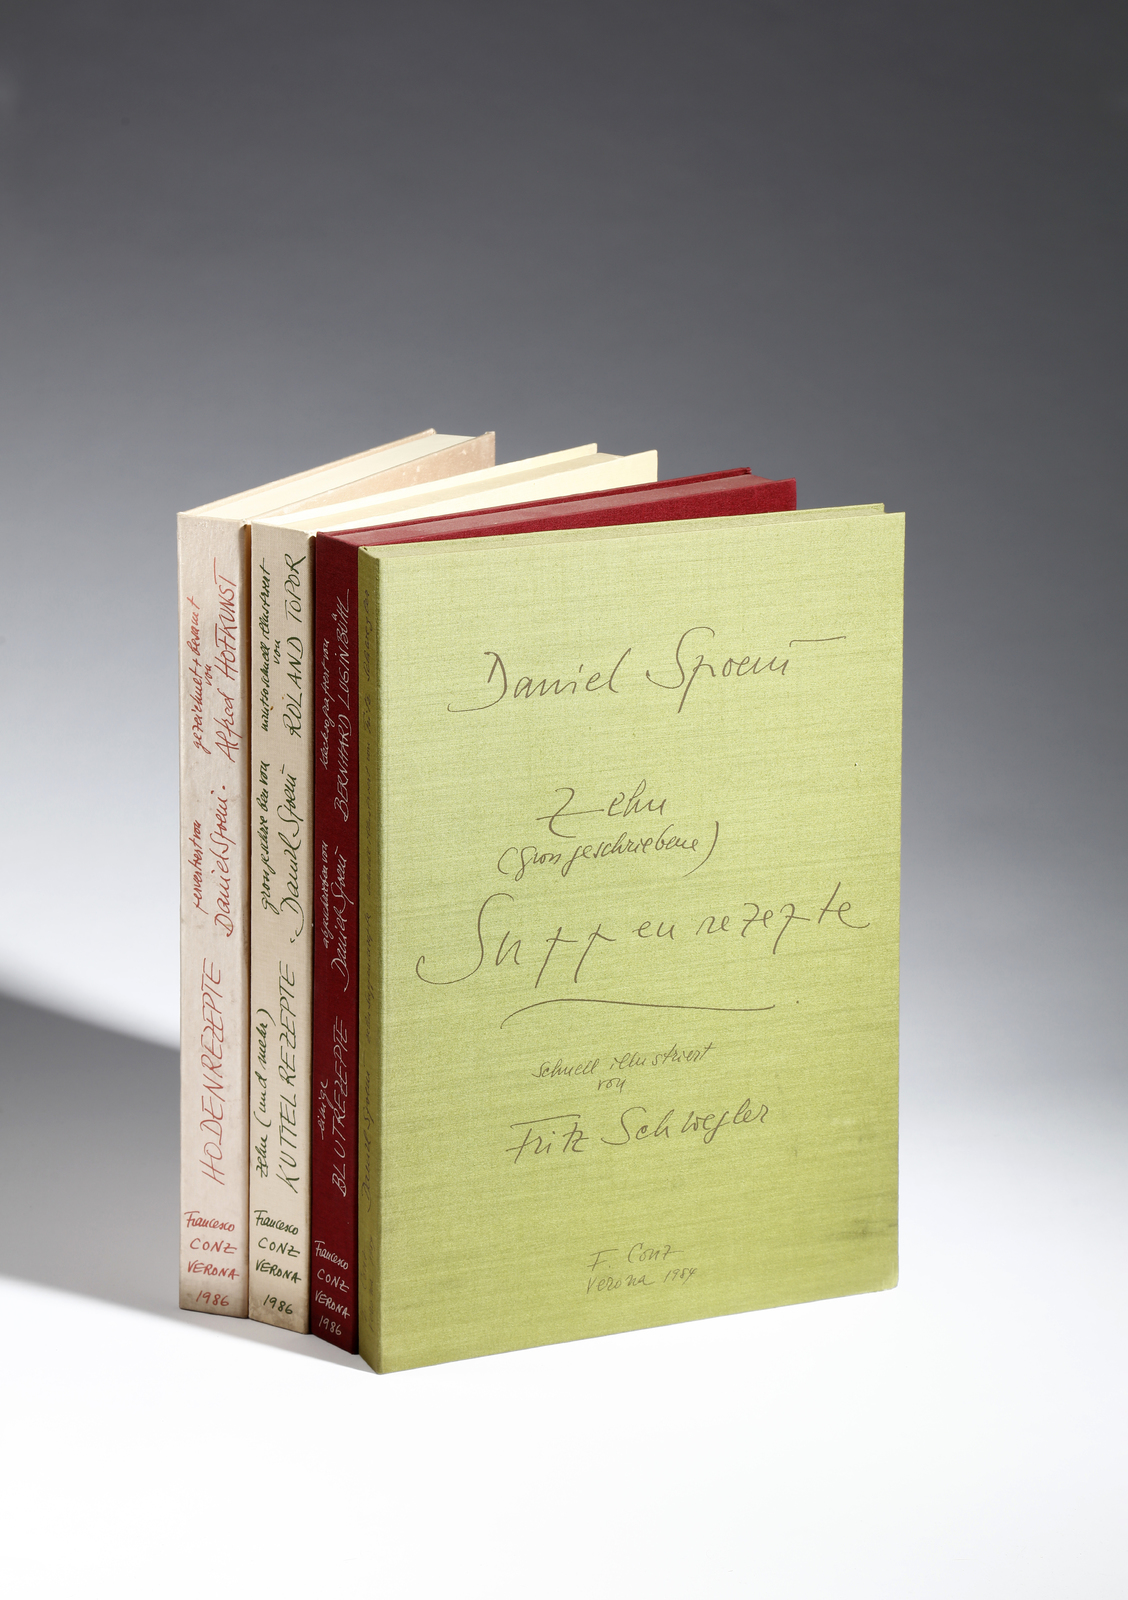 gezeichnet + besamt
von
Alfred HOFKUNST
serviert von
Daniel Spoerri.
HODENREZEPTE
Francesco
CONZ
VERONA
1986
schnell illustriert
von
ROLAND TOPOR
von
Daniel Spoerri
zehn (und mehr)
KUTTELREZEPTE
Francesco
CONZ
VERONA
1986
von
BERNHARD LUGINBÜHL
abgeschrieben von
Daniel Spoerri
einige
BLUTREZEPTE
Francesco
CONZ
VERONA
1986
Daniel Spoerri
Daniel Spoerri
Zehn
(grossgeschriebene)
Suppenrezepte
schnell illustriert
von
Fritz Schwegler
F. Conz
Verona 1984